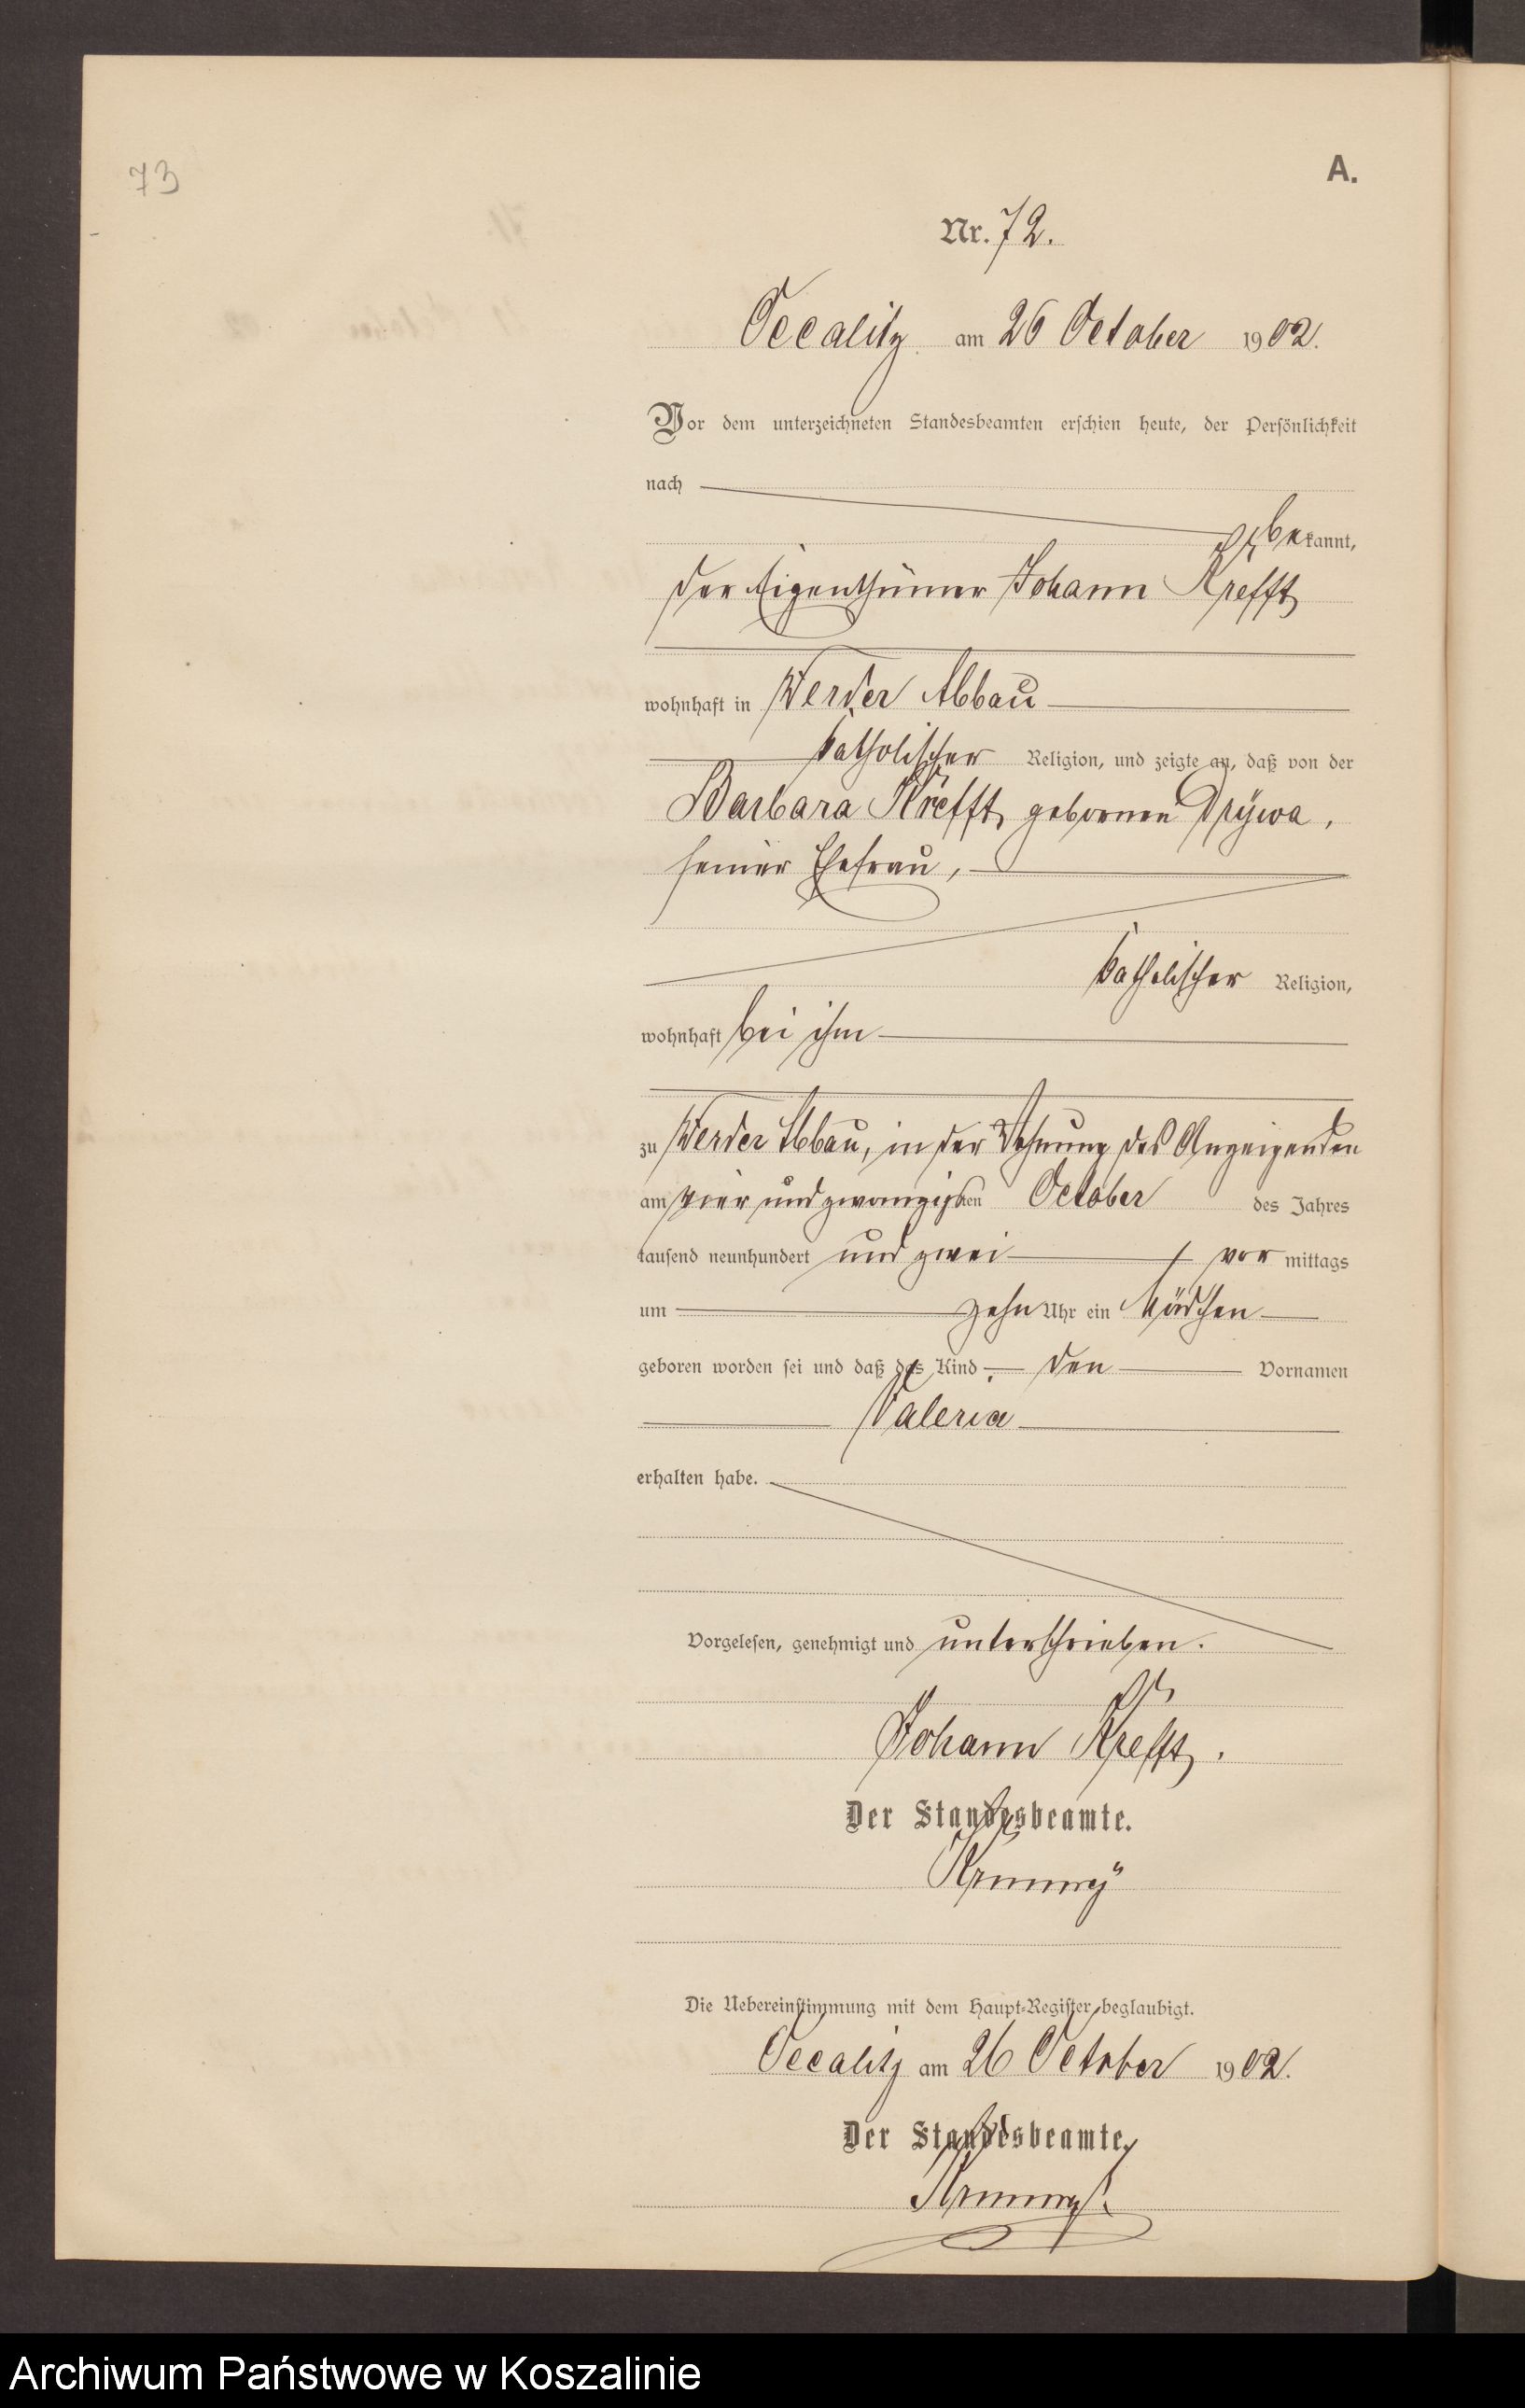 73
A.
Nr. 72.
Occalitz am 26 October 1902.
Vor dem unterzeichneten Standesbeamten erschien heute, der Persönlichkeit
nach
bekannt,
der Eigenthümer Johann Krefft
wohnhaft in Werder Abbau
katholischer Religion, und zeigte an, daß von der
Barbara Krefft, gebornen Drÿwa,
seiner Ehefrau,
katholischer Religion,
wohnhaft bei ihm
zu Werder Abbau, in der Wohnung des Anzeigenden
am vier und zwanzigsten October des Jahres
tausend neunhundert und zwei vor mittags
um zehn Uhr ein Mädchen
geboren worden sei und daß das Kind den Vornamen
Valeria
erhalten habe.
Vorgelesen, genehmigt und unterschrieben.
Johann Krefft.
Der Standesbeamte.
Die Uebereinstimmung mit dem Haupt-Register beglaubigt.
Occalitz am 26 October 1902.
Der Standesbeamte.
Archiwum Państwowe w Koszalinie